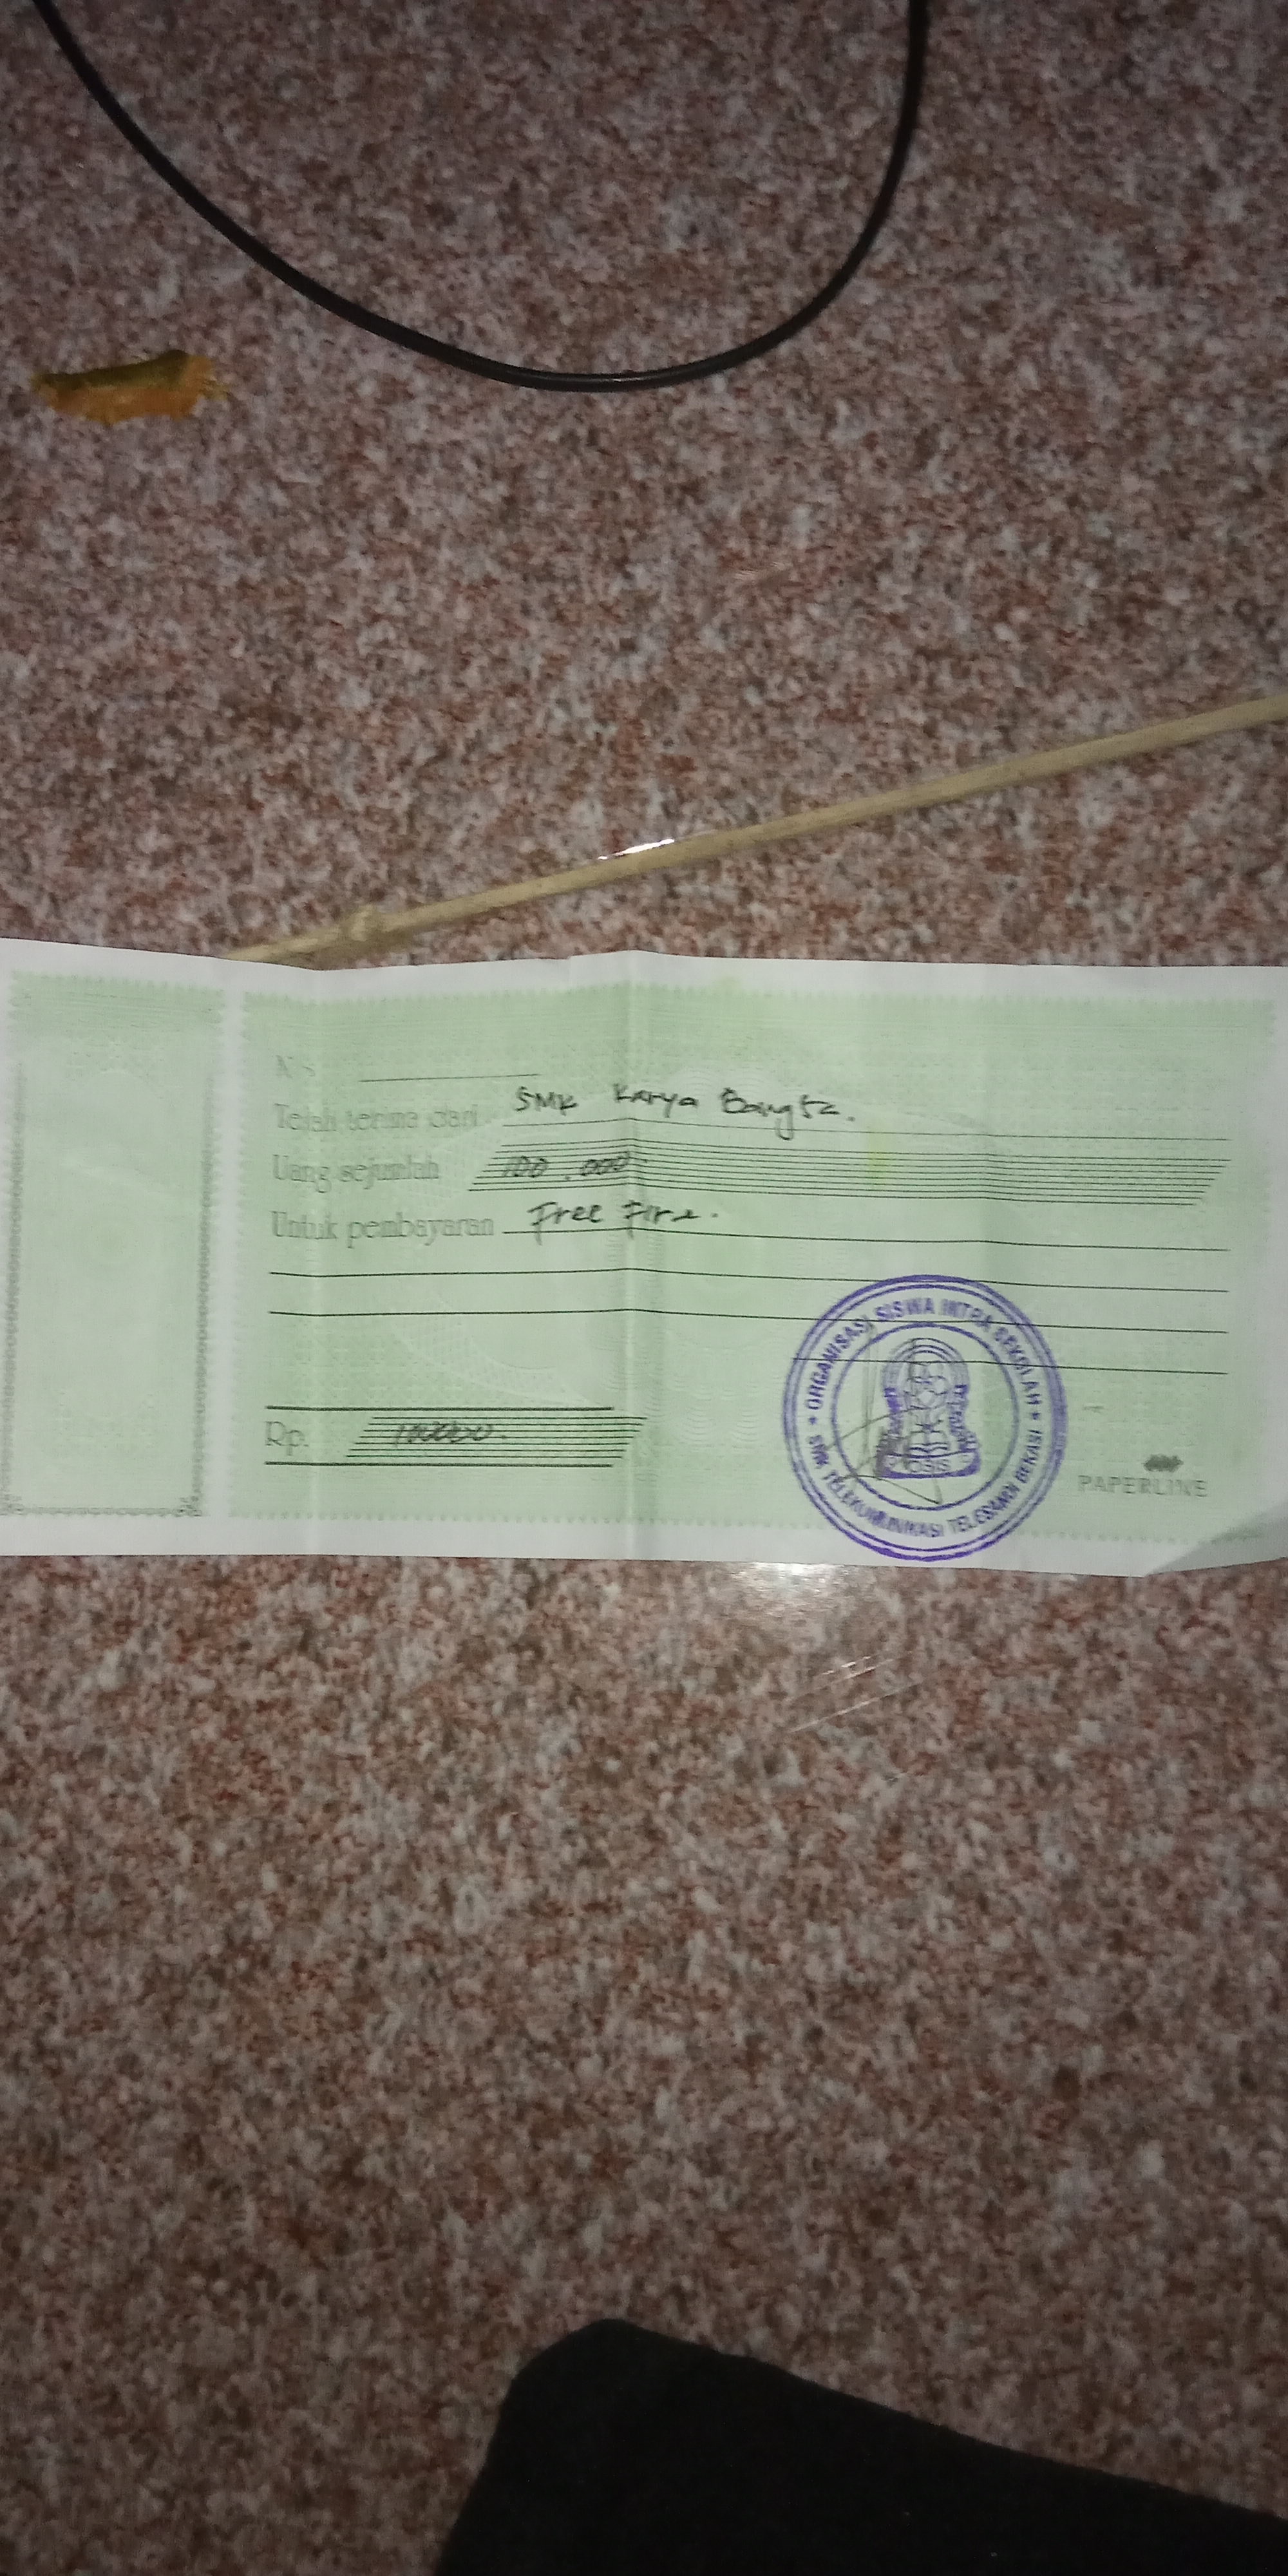 No.
Telah terima dari SMK Karya Bangsa.
Uang sejumlah 100.000
Untuk pembayaran Free Fire.
Rp. 100000.
ORGANISASI SISWA INTRA SEKOLAH
SMK TELEKOMUNIKASI TELESANDI BEKASI
OSIS
PAPERLINE